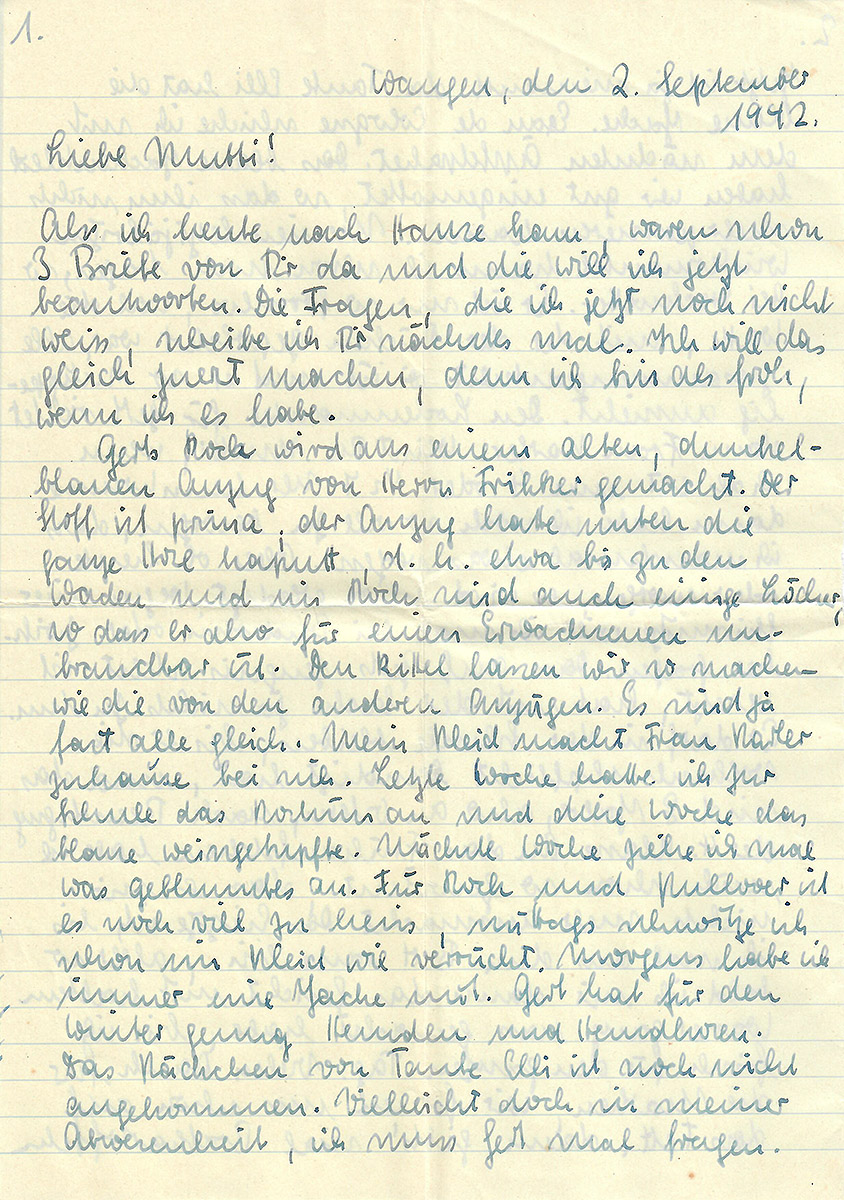 1.
Wangen, den 2. September
1942.
Liebe Mutti!
Als ich heute nach Hause kam, waren schon
3 Briefe von Dir da und die will ich jetzt
beantworten. Die Fragen, die ich jetzt noch nicht
weiss, schreibe ich Dir nächstes mal. Ich will das
gleich zuerst machen, denn ich bin als froh,
wenn ich es habe.
Gerts Rock wird aus einem alten, dunkel-
blauen Anzug von Herrn Frikker gemacht. Der
Stoff ist prima, der Anzug hatte unten die
ganze Hose kaputt, d. h. etwa bis zu den
Waden und im Rock sind auch einige Löcher,
so dass er also für einen Erwachsenen un-
brauchbar ist. Den Kittel lassen wir so machen
wie die von den anderen Anzügen. Es sind ja
fast alle gleich. Mein Kleid macht Frau
zuhause, bei sich. Letzte Woche hatte ich zur
Schule das Kostüm an und diese Woche das
blaue weissgetupfte. Nächste Woche ziehe ich mal
was geblumtes an. Für Rock und Pullover ist
es noch viel zu heiss, mittags schwitze ich
schon im Kleid wie verrückt. Morgens habe ich
immer eine Jacke mit. Gert hat für den
Winter genug Hemden und Hemdhosen.
Das Päckchen von Tante Elli ist noch nicht
angekommen. Vielleicht doch in meiner
Abwesenheit, ich muss Gert mal fragen.